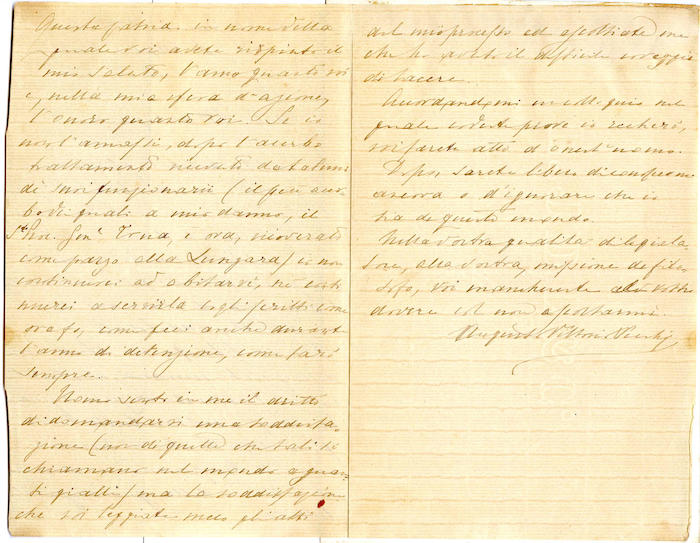 Questa patria in nome della
quale voi avete respinto il
mio saluto, l'amo quanto voi
e, nella mia sfera d'azione,
l'onoro quanto voi. Se io
non l'amassi, dopo l'acerbo
trattamento ricevuto da taluni
de' suoi funzionarii (il più acer
bo di quali a mio danno, il
Gen.le è ora, ricoverato
come pazzo alla Lungara) io non
continuerei ad abitarvi, nè conti
nuerei a servirla cogli scritti come
ora fo, come feci anche durante
l'anno di detenzione, come farò
sempre.
Uomo sento in me il dritto
di domandarvi una soddisfa-
zione (non di quelle che tali si
chiamano nel mondo a guan-
ti gialli) ma la soddisfazione
che voi leggiate meco gli atti
del mio processo ed ascoltiate me
che ho avuto il difficile coraggio
di tacere.
Accordandomi un colloquio nel
quale codeste prove io recherò,
voi farete atto d'onest'uomo.
Dopo, sarete libero di conoscermi
ancora o d'ignorare che io
sia de questo mondo.
Nella vostra qualità di legisla
tore, alla vostra missione de filo
sofo, voi mancherete al vostro
dovere col non ascoltarmi.
Augusto Vittorio Vecchj